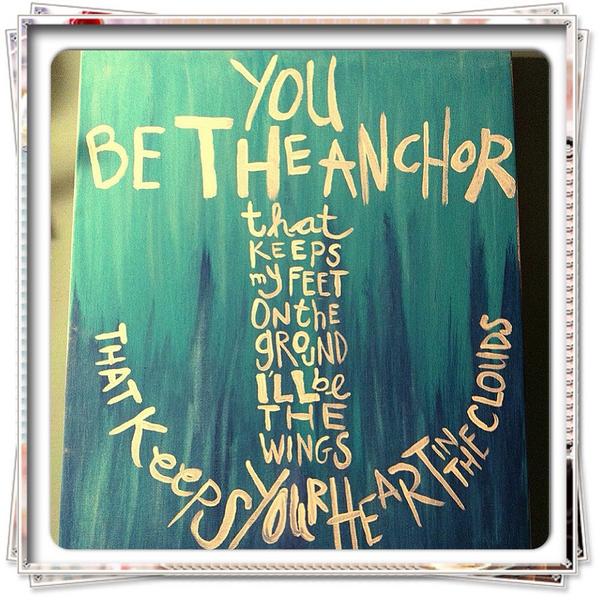 YOU
BE THE ANCHOR
that
KEEPS
my FEET
ON the
GROUND
I'LL be
THE
WINGS
THAT KeePS YOUR HEART IN THE CLOUDS